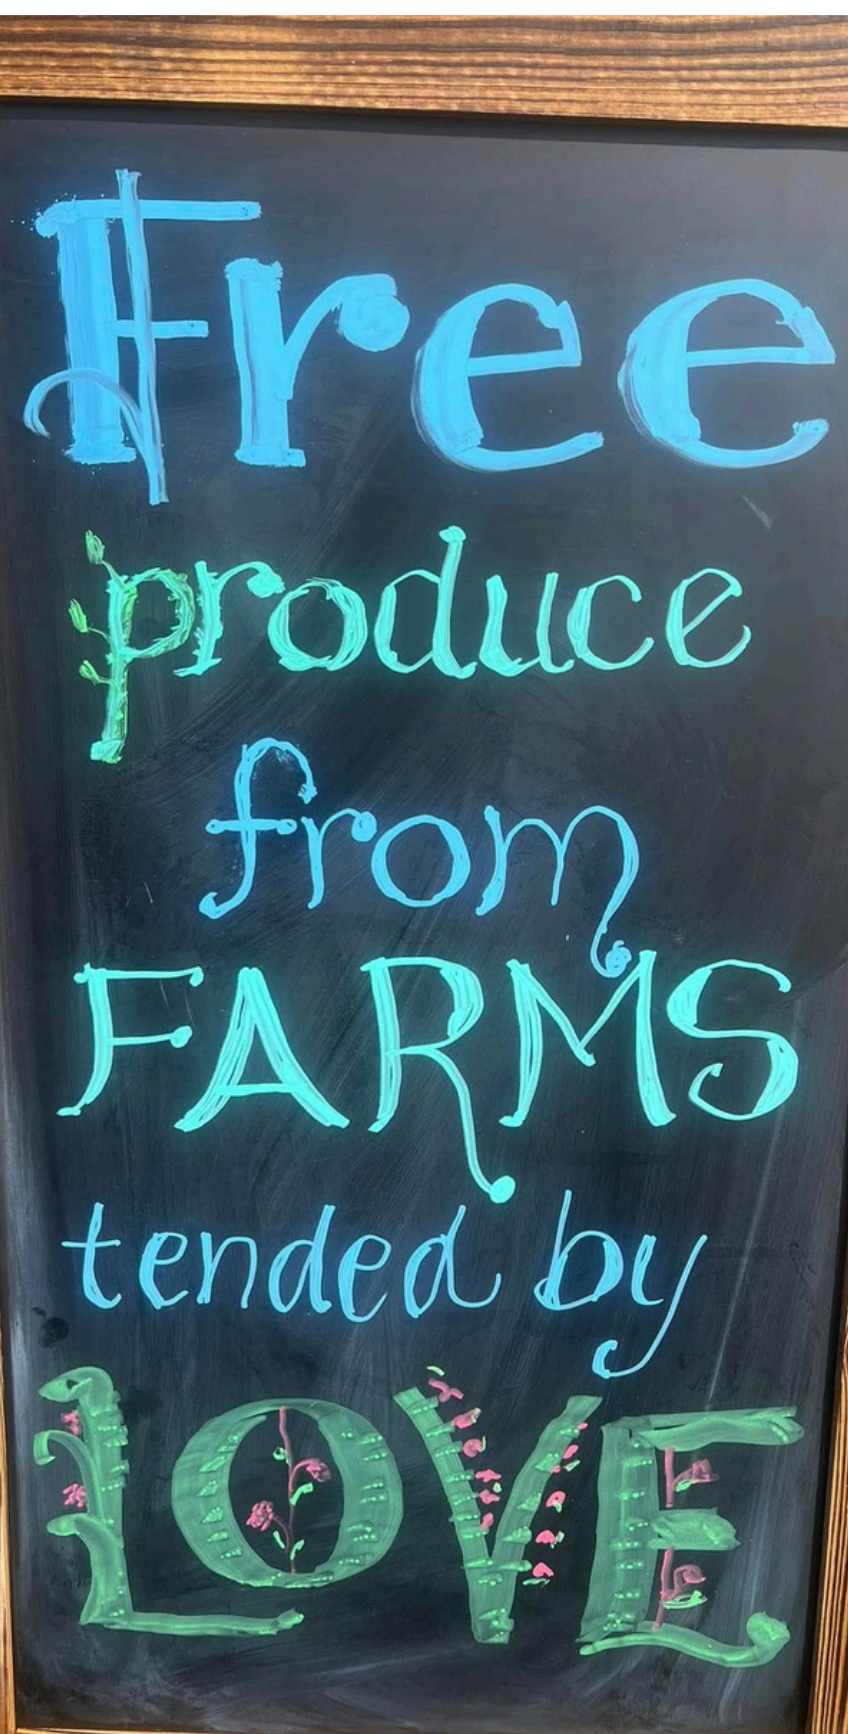 Free
produce
from
FARMS
tended by
LOVE